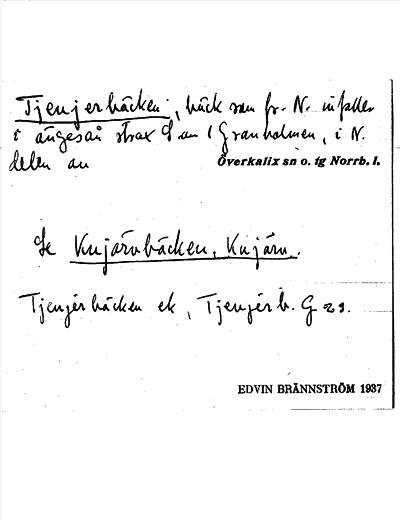 Tjenjerbäcken, bäck som fr. N. infaller
i ängesån strax S om Granholmen, i N.
delen av
Överkalix sn o. tg Norrb. l.
Se Knjärvbäcken, Knjärv.
Tjenjerbäcken ek, Tjenjerb. G 29.
EDVIN BRÄNNSTRÖM 1937